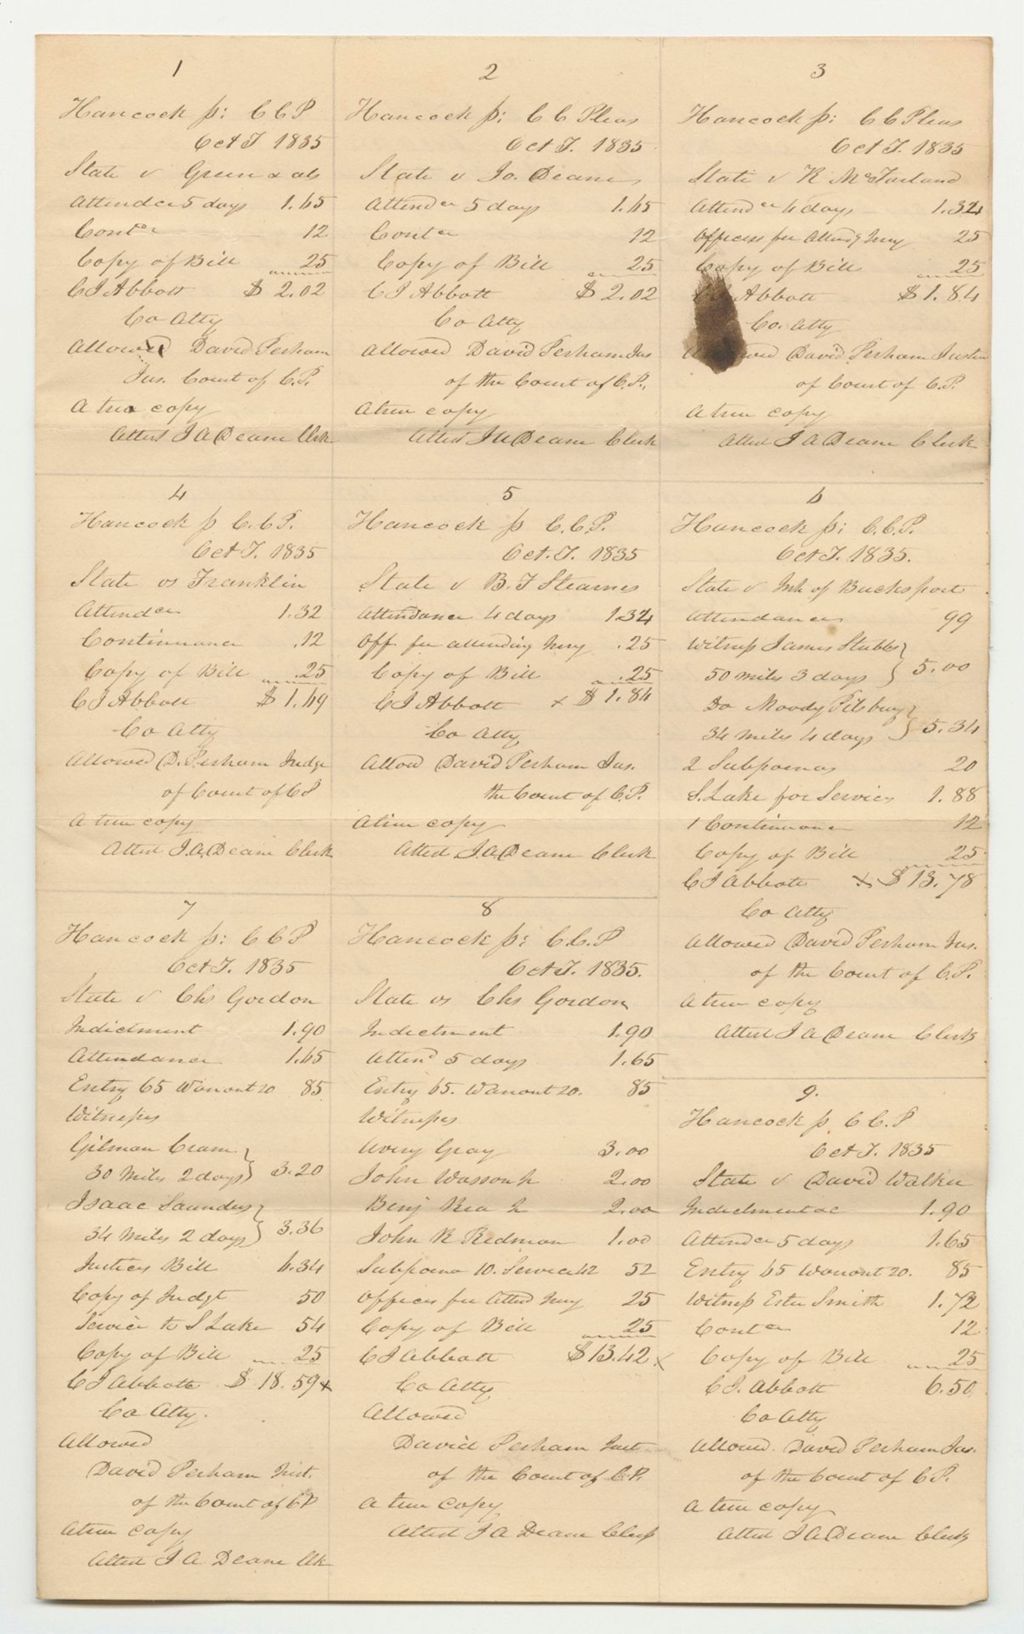 1
Hancock ss: C C P
Oct T 1835
State v Green & als
Attendce 5 days 1.65
Contce 12
Copy of Bill 25
C J Abbott $ 2.02
Co Atty
Allowed David Perham
Jus. Court of C.P.
A true copy
Attest J A Deane Clerk
2
Hancock ss: C C Pleas
Oct T. 1835
State v Jo. Deane
Attendce 5 days 1.65
Contce 12
Copy of Bill 25
C J Abbott $ 2.02
Co Atty
Allowed David Perham Jus
of the Court of C.P.
A true copy
Attest J A Deane Clerk
3
Hancock ss: C C Pleas
Oct T. 1835
State v K McFarland
Attendce 4 days 1.34
Officers fee Attendg Jury 25
Copy of Bill 25
Abbott $ 1.84
Co. Atty
David Perham Justice
of Court of C.P.
A true copy
Attest J A Deane Clerk
4
Hancock ss C.C.P.
Oct T. 1835
State vs Franklin
Attendce 1.32
Continuance .12
Copy of Bill .25
C J Abbott $ 1.69
Co Atty
Allowed D. Perham Judge
of Court of C P
A true copy
Attest J. A. Deane Clerk
5
Hancock ss C.C.P.
Oct. T. 1835
State v B. F Stearnes
Attendance 4 days 1.34
Off. fee attending Jury .25
Copy of Bill .25
C J Abbott x $ 1.84
Co Atty
Allowd David Perham Jus.
the Court of C.P.
A true copy
Attest J. A. Deane Clerk
6
Hancock ss: C.C.P.
Oct T. 1835.
State v Inh of Bucksport
Attendance 99
Witness James Stubbs
50 miles 3 days } 5.00
Do Moody Pilsbury
34 miles 4 days } 5.34
2 Subpoenas 20
S. Lake for Services 1.88
1 Continuance 12
Copy of Bill 25
C J Abbott x $ 13.78
Co Atty
Allowed David Perham Jus.
of the Court of C.P.
A true copy
Attest J A Deane Clerk
7
Hancock ss: C C P
Oct T. 1835
State v Chs Gordon
Indictment 1.90
Attendance 1.65
Entry 65 Warrant 20 85
Witnesses
Gilman Cram
30 Miles 2 days } 3.20
Isaac Saunders
34 Miles 2 days } 3.36
Justices Bill 6.34
Copy of Judgt 50
Service to S Lake 54
Copy of Bill 25
C J Abbott $ 18.59 x
Co Atty.
Allowed
David Perham Just.
of the Court of C P
A true copy
Attest J A Deane Clk
8
Hancock ss: C.C.P
Oct T. 1835.
State vs Chs Gordon
Indictment 1.90
Attend 5 days 1.65
Entry 65. Warrant 20. 85
Witnesses
Avery Gray 3.00
John Wasson 2.00
Benj Rea 2.00
John R Redman 1.00
Subpoena 10. Service 42 52
Officers fee Attend Jury 25
Copy of Bill 25
C J Abbott $ 13.42 x
Co Atty
Allowed
David Perham Just
of the Court of C.P.
A true copy
Attest J A Deane Clerk
9.
Hancock ss C C. P
Oct T. 1835
State v David Walker
Indictment &c 1.90
Attendce 5 days 1.65
Entry 65 Warrant 20. 85
Witness Ester Smith 1.72
Contce 12
Copy of Bill 25
C J. Abbott 6.50
Co Atty
Allowed. David Perham Jus.
of the Court of C P.
A true copy
Attest J A Deane Clerk